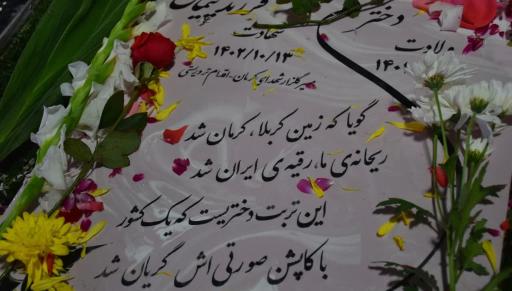 دختر
شهادت
ولادت
۱۴۰۲/۱۰/۱۳
۱۴۰
مسیر گلزار شهدای کرمان - اقدام تروریستی
گویا که زمین کربلا، کرمان شد
ریحانه‌ی ما، رقیه‌ی ایران شد
این تربت دختریست که یک کشور
با کاپشن صورتی اش گریان شد